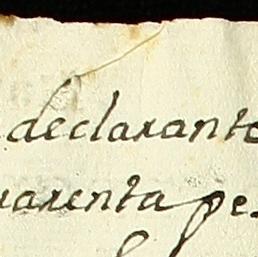 declarante
uarenta pe